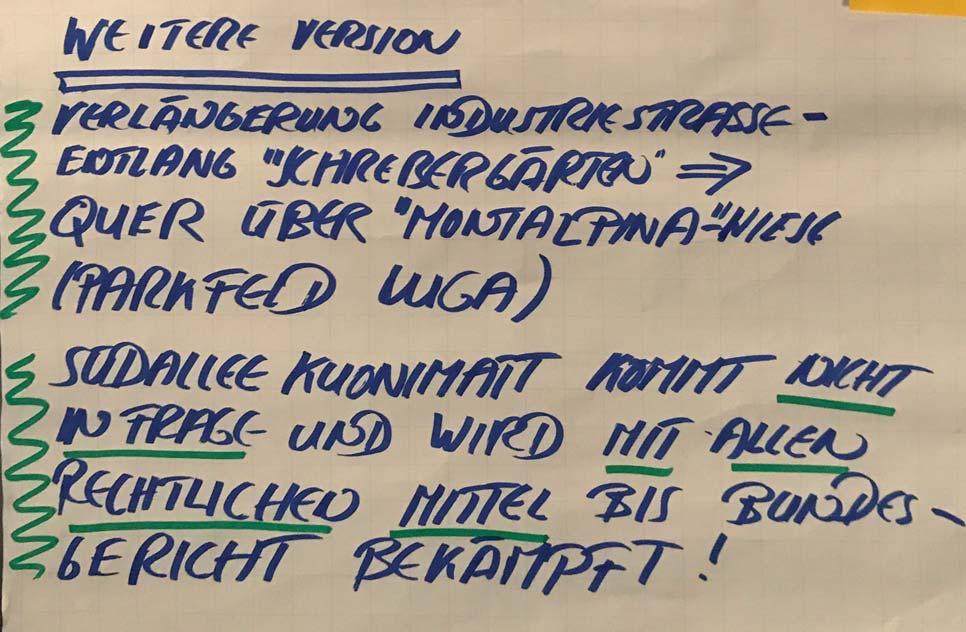 WEITERE VERSION
VERLÄNGERUNG INDUSTRIESTRASSE-
ENTLANG "SCHREBERGÄRTEN" ⇒
QUER ÜBER "MONTALPINA"-WIESE
(PARKFELD LUGA)
SÜDALLEE KUONIMATT KOMMT NICHT
IN FRAGE UND WIRD MIT ALLEN
RECHTLICHEN MITTEL BIS BUNDES-
GERICHT BEKÄMPFT!